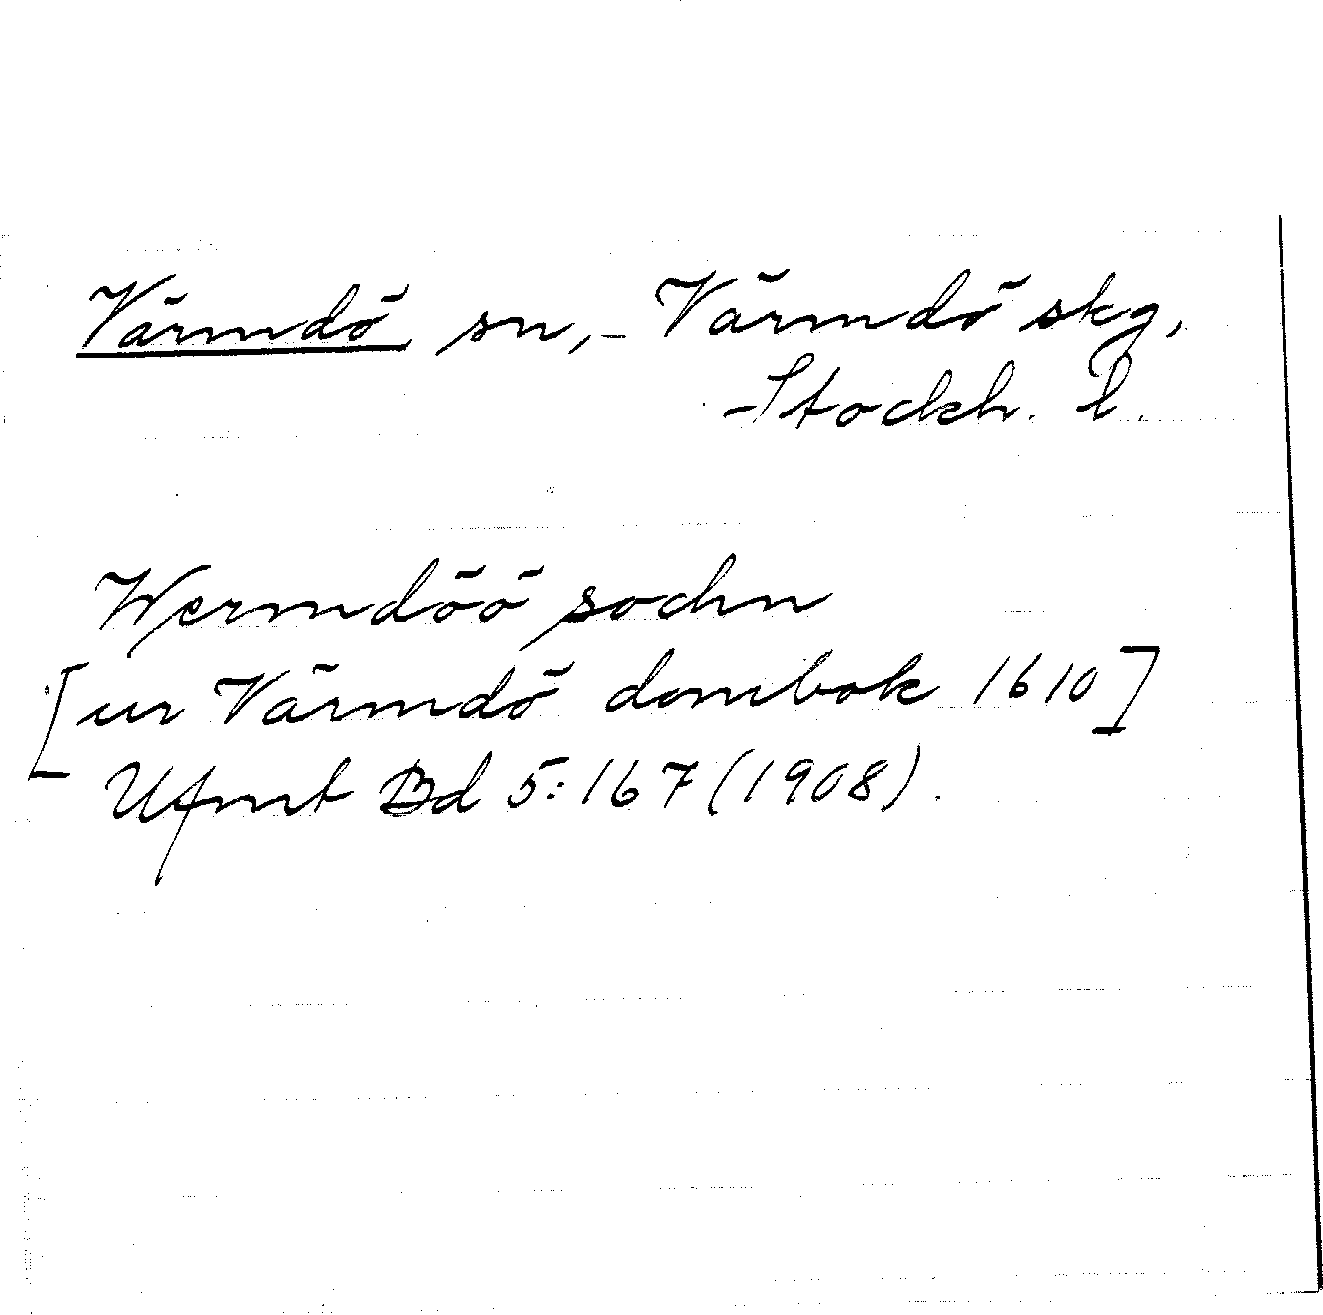 Värmdö sn, – Värmdö skg,
– Stockh. l.
Wermdöö sochn
[ur Värmdö dombok 1610]
Ufmt Bd 5:167 (1908).